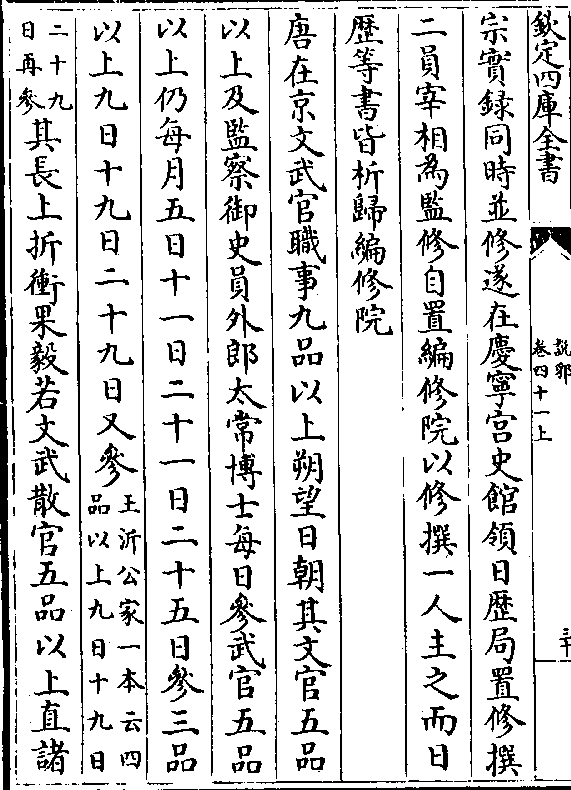 欽定四庫全書
說郛
卷四十一上
三十
宗實録同時並修遂在慶寧宫史館領日歴局置修撰
二員宰相為監修自置編修院以修撰一人主之而日
歴等書皆析歸編修院
唐在京文武官職事九品以上朔望日朝其文官五品
以上及監察御史員外郎太常博士每日參武官五品
以上仍每月五日十一日二十一日二十五日參三品
以上九日十九日二十九日又參王沂公家一本云四
品以上九日十九日
二十九
日再參其長上折衝果毅若文武散官五品以上直諸